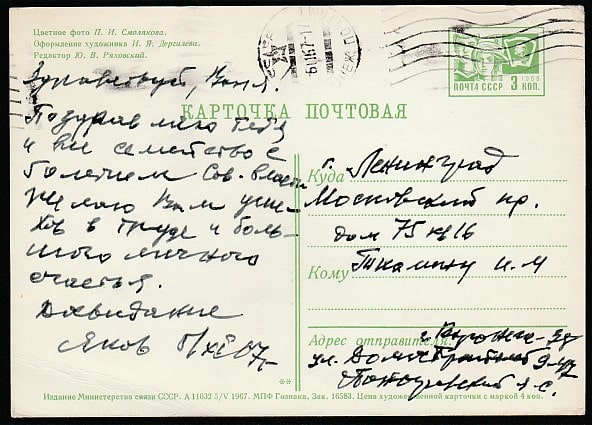 Цветное фото П. И. Смолякова.
Оформление художника И. Я. Дергилева.
Редактор Ю. В. Ряховский.
1966
ПОЧТА СССР 3 КОП.
КАРТОЧКА ПОЧТОВАЯ
Здравствуй, Ваня.
Поздравляю тебя
и все семейство с
50летием Сов. власти
Желаю Вам успе-
хов в труде и боль-
шого личного
счастья.
Досвидание
Яков 5/XI 67г.
Куда г. Ленинград
Московский пр.
дом 75 кв 16
Кому И. И.
Адрес отправителя: г. Воронеж
ул. Домостроителей
**
Издание Министерства связи СССР. А 11032 5/V 1967. МПФ Гознака. Зак. 16583. Цена художественной карточки с маркой 4 коп.